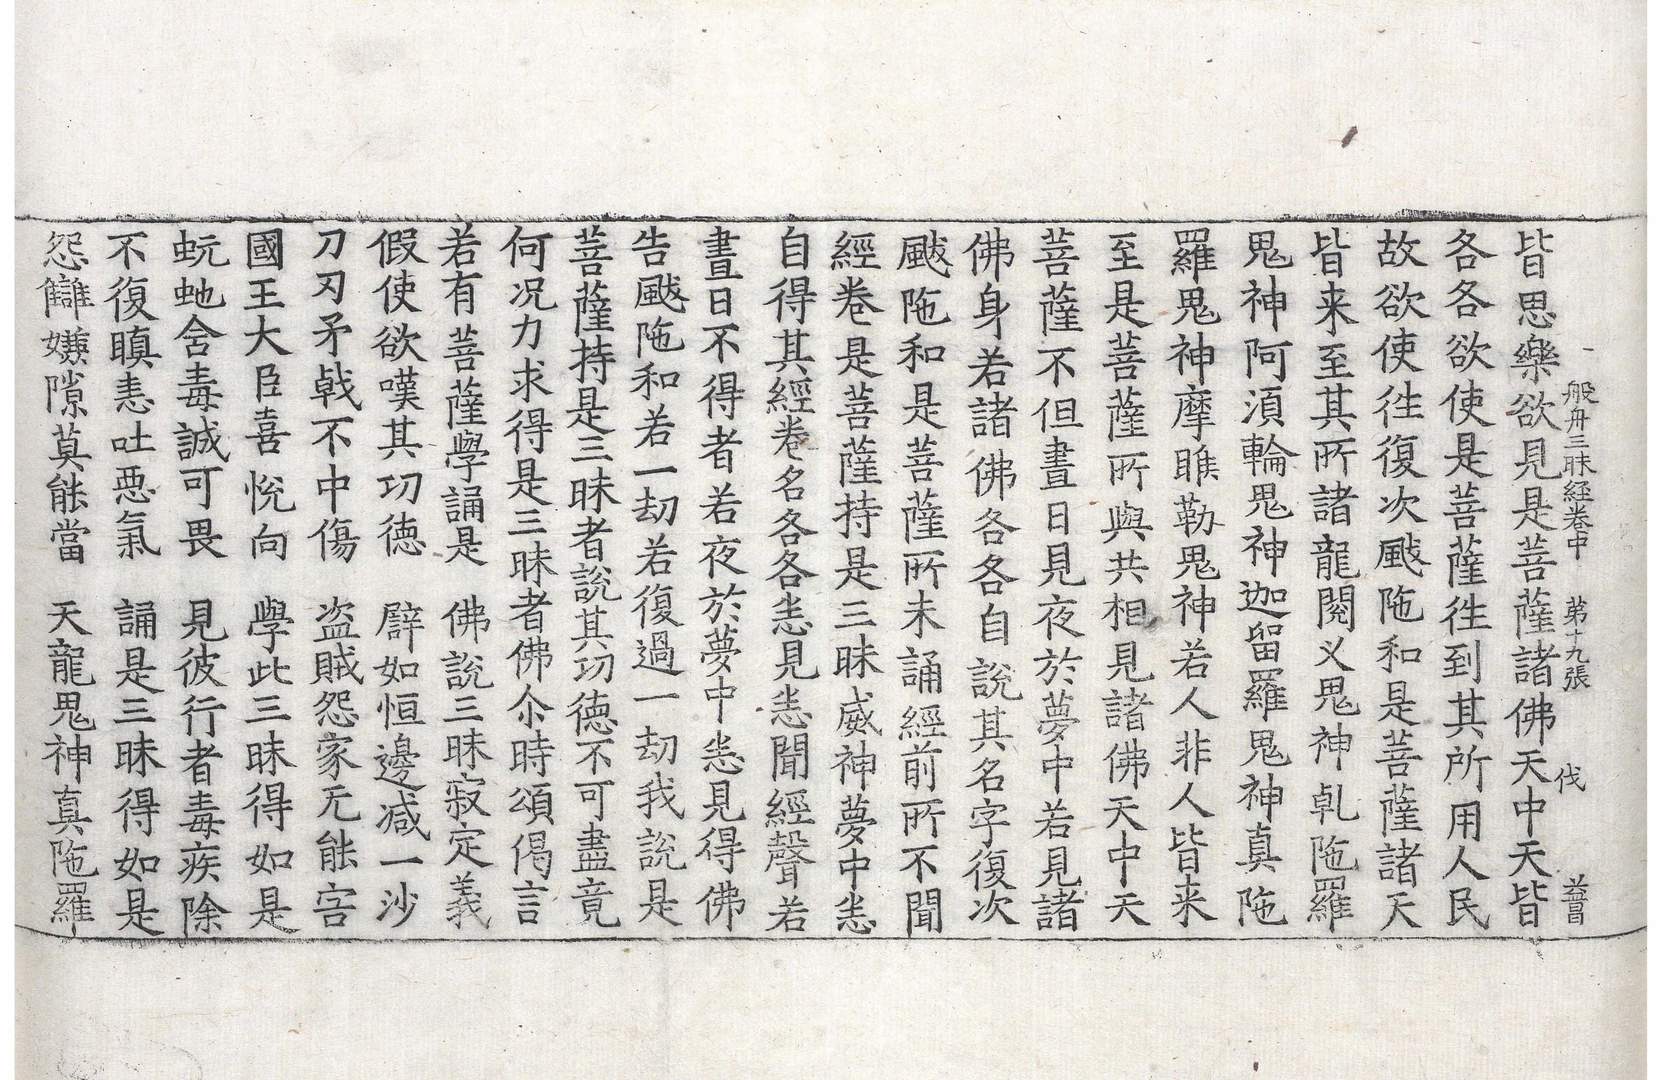 般舟三昧経卷中 第十九張 伐
皆思樂欲見是菩薩諸佛天中天皆
各各欲使是菩薩徃到其所用人民
故欲使徃復次颰陁和是菩薩諸天
皆来至其所諸龍閱义䰟神乹陁羅
䰟神阿湏輪䰟神迦留羅䰟神真陁
羅䰟神摩睺勒䰟神若人非人皆来
至是菩薩所與共相見諸佛天中天
菩薩不但晝日見夜於夢中若見諸
佛身若諸佛各各自說其名字復次
颰陁和是菩薩所未誦經前所不聞
經卷是菩薩持是三昧威神夢中悉
自得其經卷名各各悉見悉聞經聲若
晝日不得者若夜於夢中悉見得佛
告颰陁和若一劫若復過一劫我說是
菩薩持是三昧者說其功德不可盡竟
何况力求得是三昧者佛尒時頌偈言
若有菩薩學誦是 佛說三昧寂定義
假使欲嘆其功德 辟如恒邊减一沙
刀刃矛㦸不中傷 盗賊怨家无能害
國王大臣喜悅向 學此三昧得如是
蚖虵含毒誠可畏 見彼行者毒疾除
不復瞋恚吐惡氣 誦是三昧得如是
怨讎嫌隙莫能當 天龍䰟神真陁羅